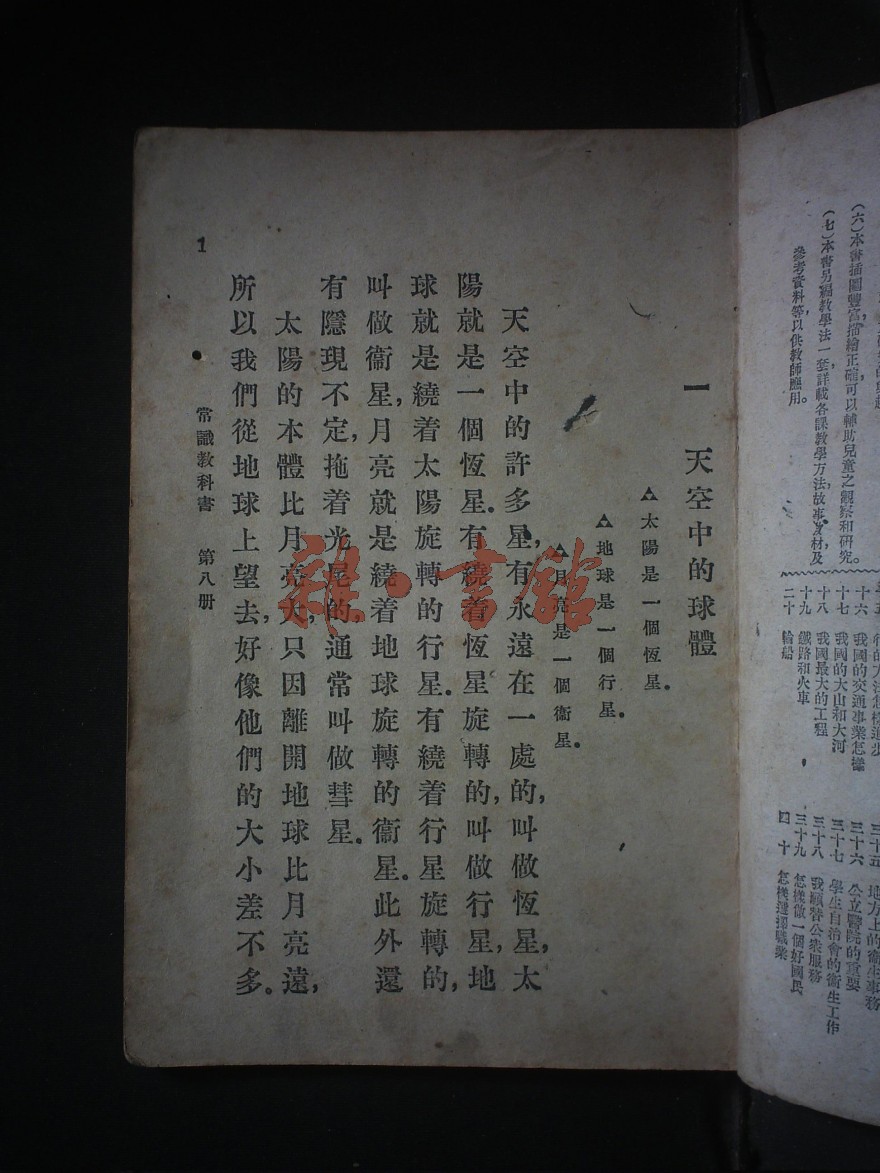 (六)本書插圖豐富,描繪正確,可以輔助兒童之觀察和研究。
(七)本書另編教學法一套,詳載各課教學方法,故事教材及
參考資料等,以供教師應用。
十六 我國的交通事業怎樣
十七 我國的大山和大河
十八 我國最大的工程
十九 鐵路和火車
二十 輪船
三十五 地方上的衛生事務
三十六 公立醫院的重要
三十七 學生自治會的衛生工作
三十八 我願替公衆服務
三十九 怎樣做一個好國民
四十 怎樣選擇職業
一 天空中的球體
△太陽是一個恆星。
△地球是一個行星。
△月亮是一個衞星。
天空中的許多星,有永遠在一處的,叫做恆星,太
陽就是一個恆星。有繞着恆星旋轉的,叫做行星,地
球就是繞着太陽旋轉的行星。有繞着行星旋轉的,
叫做衞星,月亮就是繞着地球旋轉的衞星。此外還
有隱現不定,拖着光尾的,通常叫做彗星。
太陽的本體比月亮大,只因離開地球比月亮遠,
所以我們從地球上望去,好像他們的大小差不多。
常識教科書 第八册
1
雜·書館